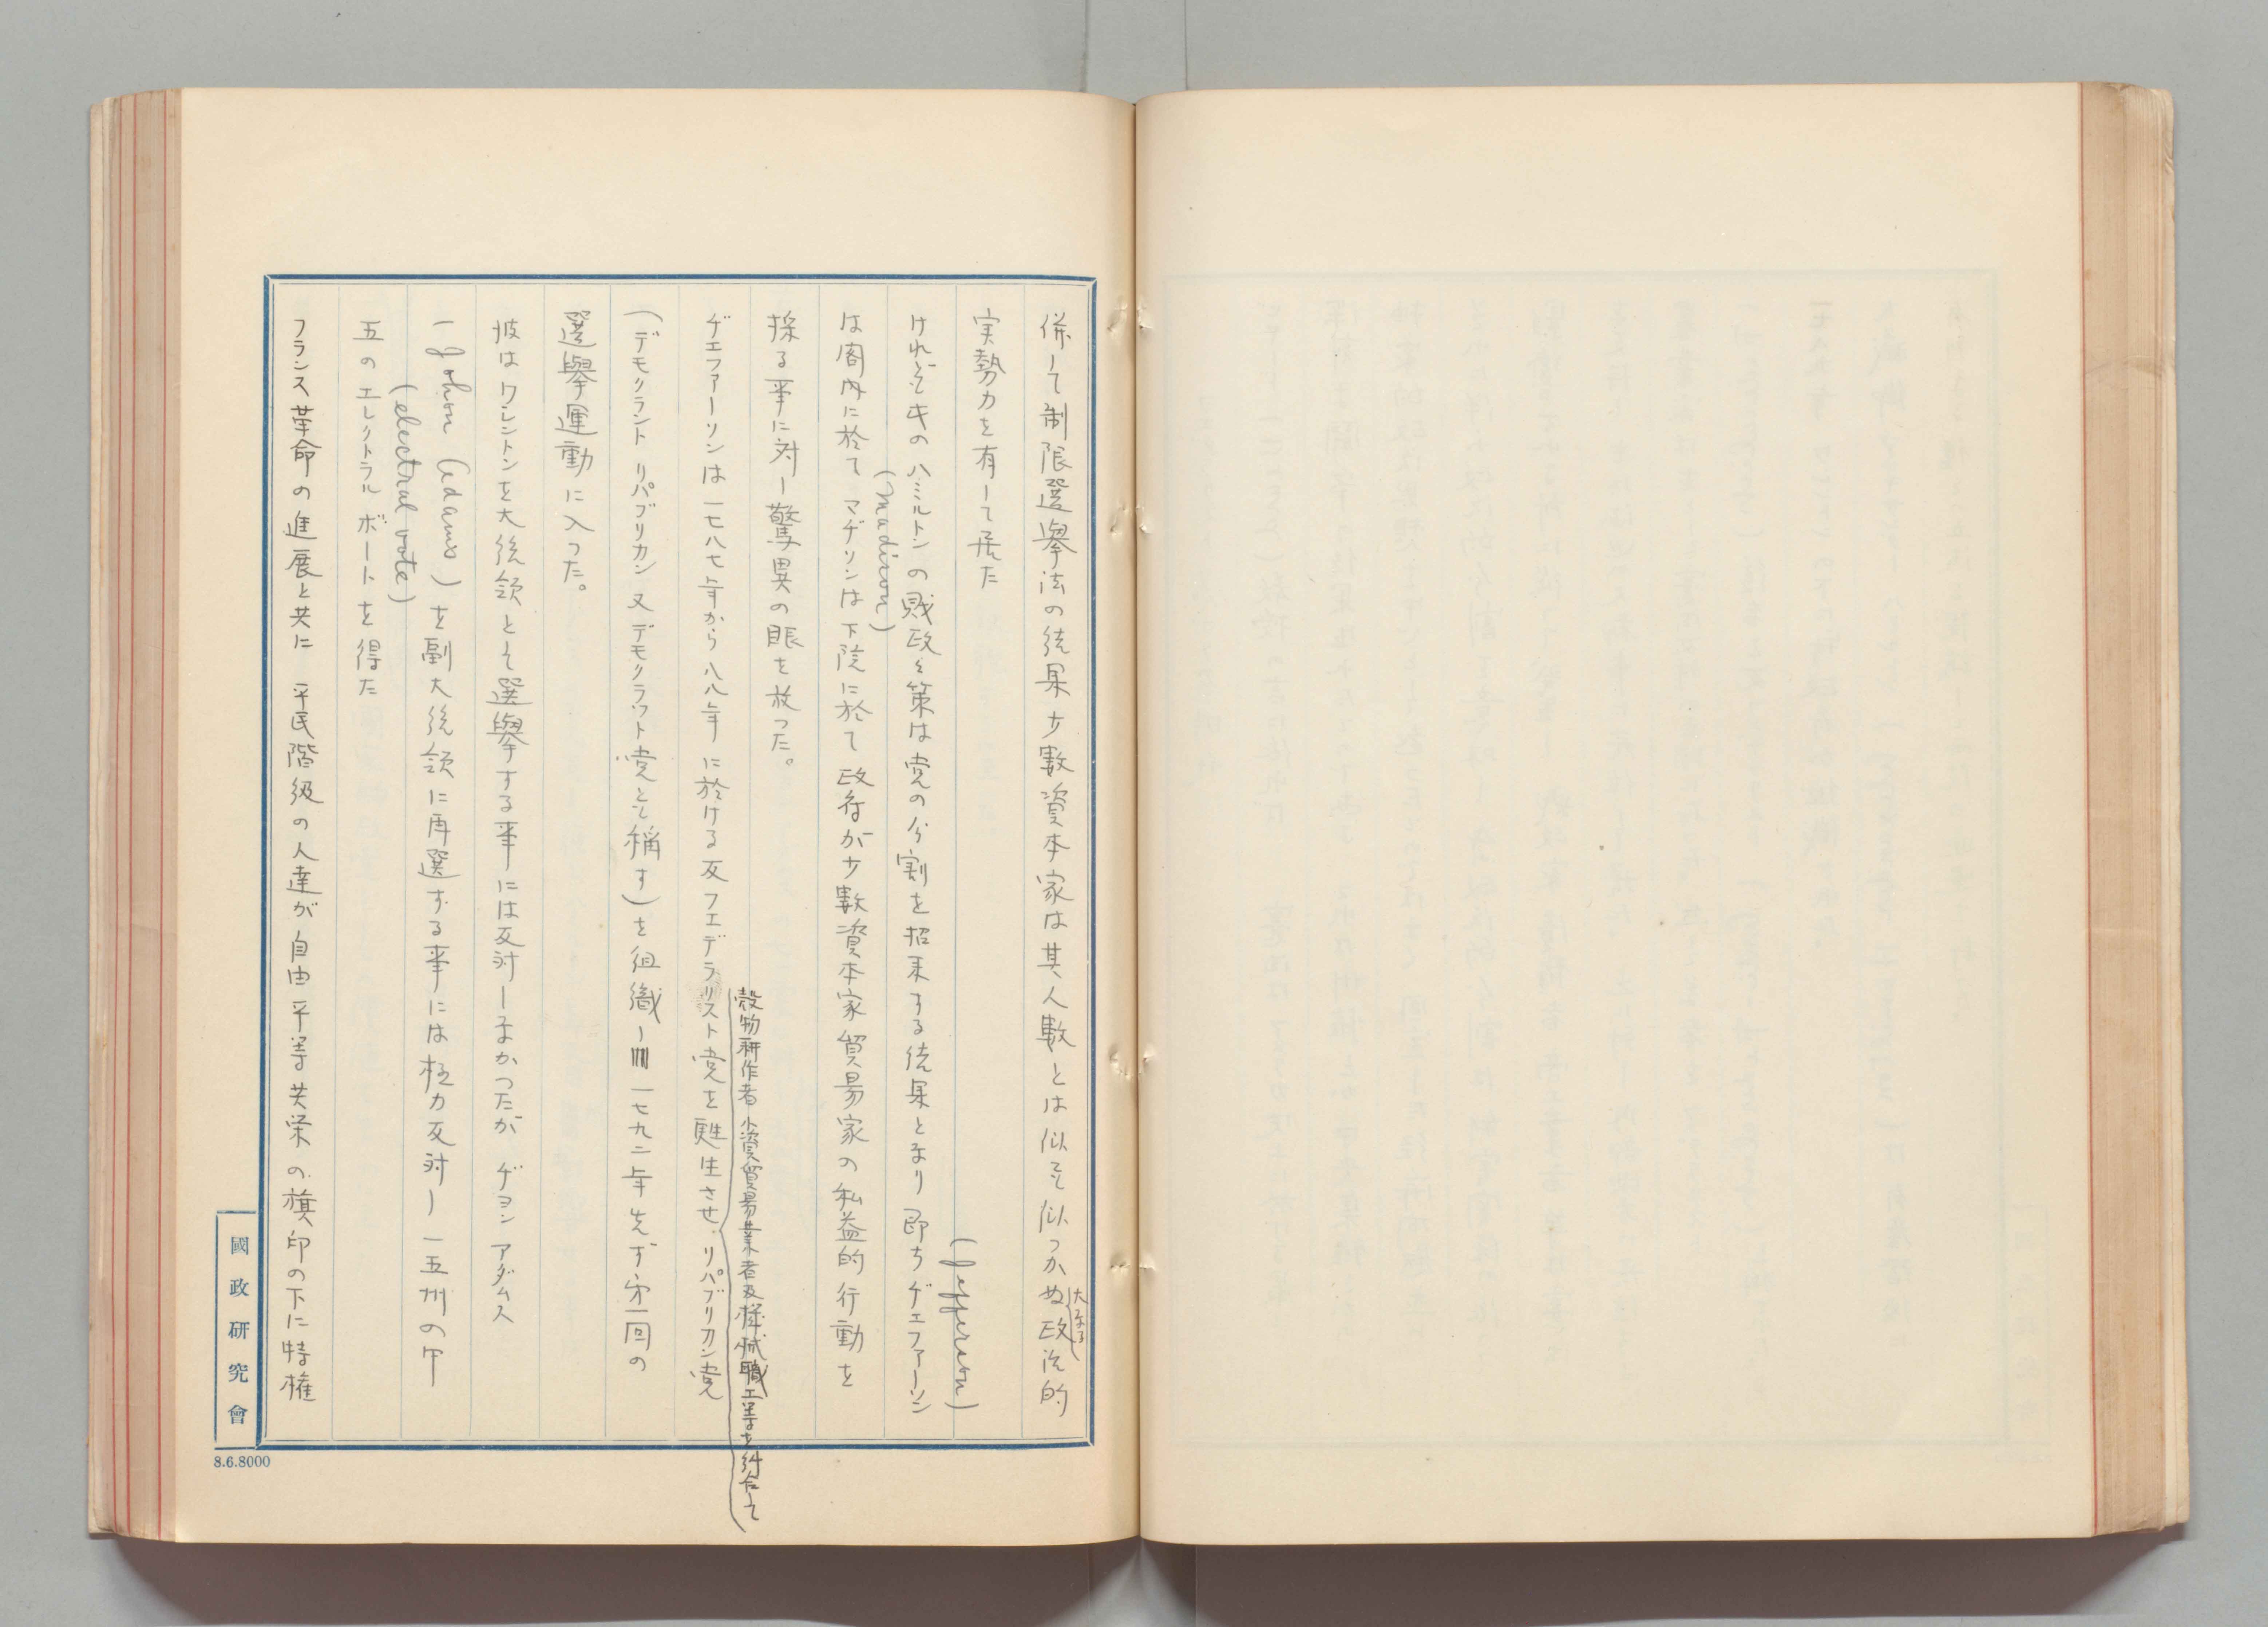 併して制限選擧法の結果少数資本家は其人数とは似ても似つかぬ政治的
大なる
実勢力を有して居た
(Jefferson)
けれども其のハミルトンの財政々策は党の分割を招来する結果となり即ちヂェファーソン
(Madison)
は閣内に於てマヂソンは下院に於て政府が少数資本家貿易家の私益的行動を
採る事に対し驚異の眼を放った。
穀物耕作者小資貿易業者及機械職工等を糾合して
ヂエファーソンは一七八七年から八八年に於ける反フェデラリスト党を甦生させ、リパブリカン党
(デモクラント リパブリカン 又デモクラフト党とも稱す)を組織し 一七九二年先ず第一回の
選擧運動に入った。
彼はワシントンを大統領として選擧する事には反対しなかったが ヂヨン アダムス
(John Adams)を副大統領に再選する事には極力反対し 一五州の中
(electral vote)
五のエレクトラル ボートを得た
フランス革命の進展と共に 平民階級の人達が自由平等共栄の旗印の下に特権
國政研究會
8.6.8000